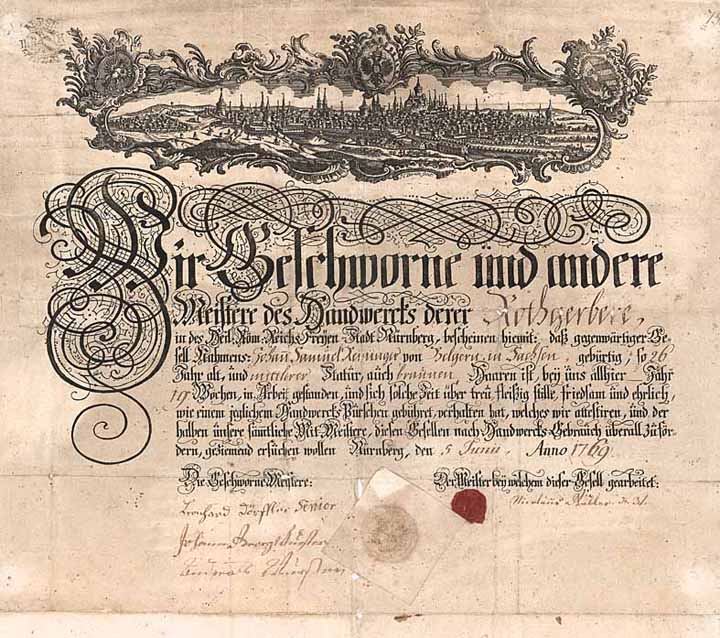 Wir Geschworne und andere
Meistere des Handwercks derer Rothgerbere,
in des Heil. Röm. Reichs Freyen Stadt Nürnberg, bescheinen hiemit: daß gegenwärtiger Ge-
sell Nahmens: Johan Samuel von Belgern in Sachsen gebürtig, so 26
Jahr alt, und mittlerer Statur, auch braunen Haaren ist, bey uns allhier Jahr
19 Wochen, in Arbeit gestanden, und sich solche Zeit über treü fleißig stille, friedsam und ehrlich,
wie einem jeglichem Handwercks Pürschen gebühret, verhalten hat, welches wir attestiren, und der
halben ünsere sämtliche Mit-Meistere, diesen Gesellen nach Handwercks-Gebrauch überall zu för-
dern, geziemend ersuchen wollen Nürnberg, den 5 Junii. Anno 1769
Die Geschworne Meistere: Der Meister bey welchem dieser Gesell gearbeitet:
Senior
Johann Georg
Andreas